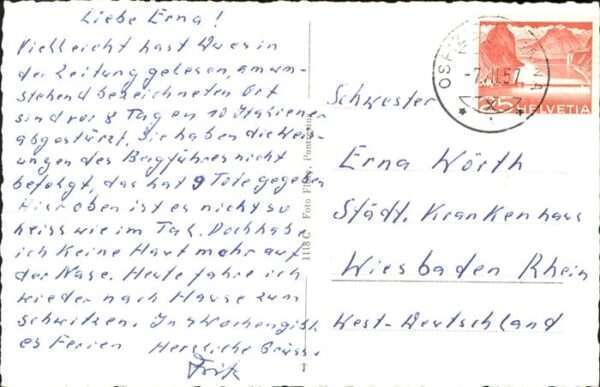 Liebe Erna!
Vielleicht hast Du es in
der Zeitung gelesen, am um-
stehend bezeichneten Ort
sind vor 8 Tagen 10 Italiener
abgestürzt. Sie haben die Weis-
ungen des Bergführers nicht
befolgt, das hat 9 Tote gegeben
Hier oben ist es nicht so
heiss wie im Tal. Doch hab
ich keine Haut mehr auf
der Nase. Heute fahre ich
wieder nach Hause zum
schwitzen. In 4 Wochen gibt
es Ferien Herzliche Grüsse
Fritz
1118 C Foto
7.VII.57
25 HELVETIA
Schwester
Erna Wörth
Städt. Krankenhaus
Wiesbaden Rhein
West-Deutschland